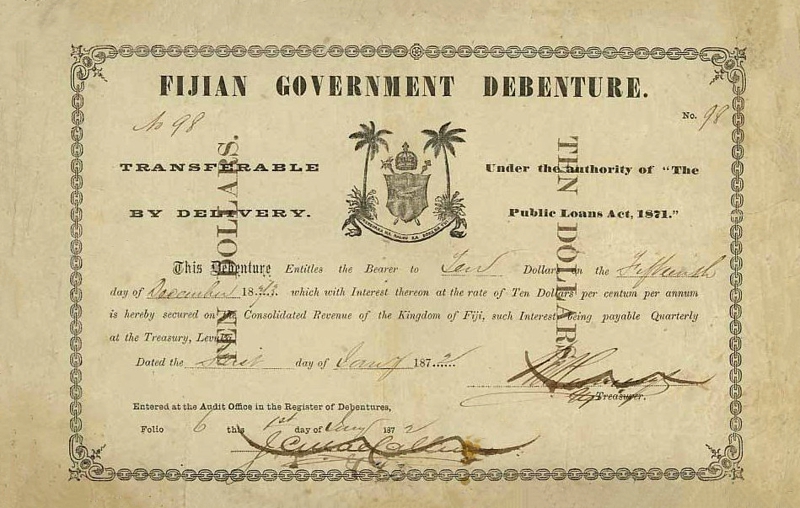 FIJIAN GOVERNMENT DEBENTURE.
No 98
No. 98
TRANSFERABLE
BY DELIVERY.
Under the authority of "The
Public Loans Act, 1871."
TEN DOLLARS.
TEN DOLLARS
This Debenture Entitles the Bearer to Ten Dollars on the Fifteenth
day of December 18 which with Interest thereon at the rate of Ten Dollars per centum per annum
is hereby secured on the Consolidated Revenue of the Kingdom of Fiji, such Interest being payable Quarterly
at the Treasury, Levuka.
Dated the First day of Jany 1872
Treasurer.
Entered at the Audit Office in the Register of Debentures,
Folio 6 this 1st day of Jany 1872